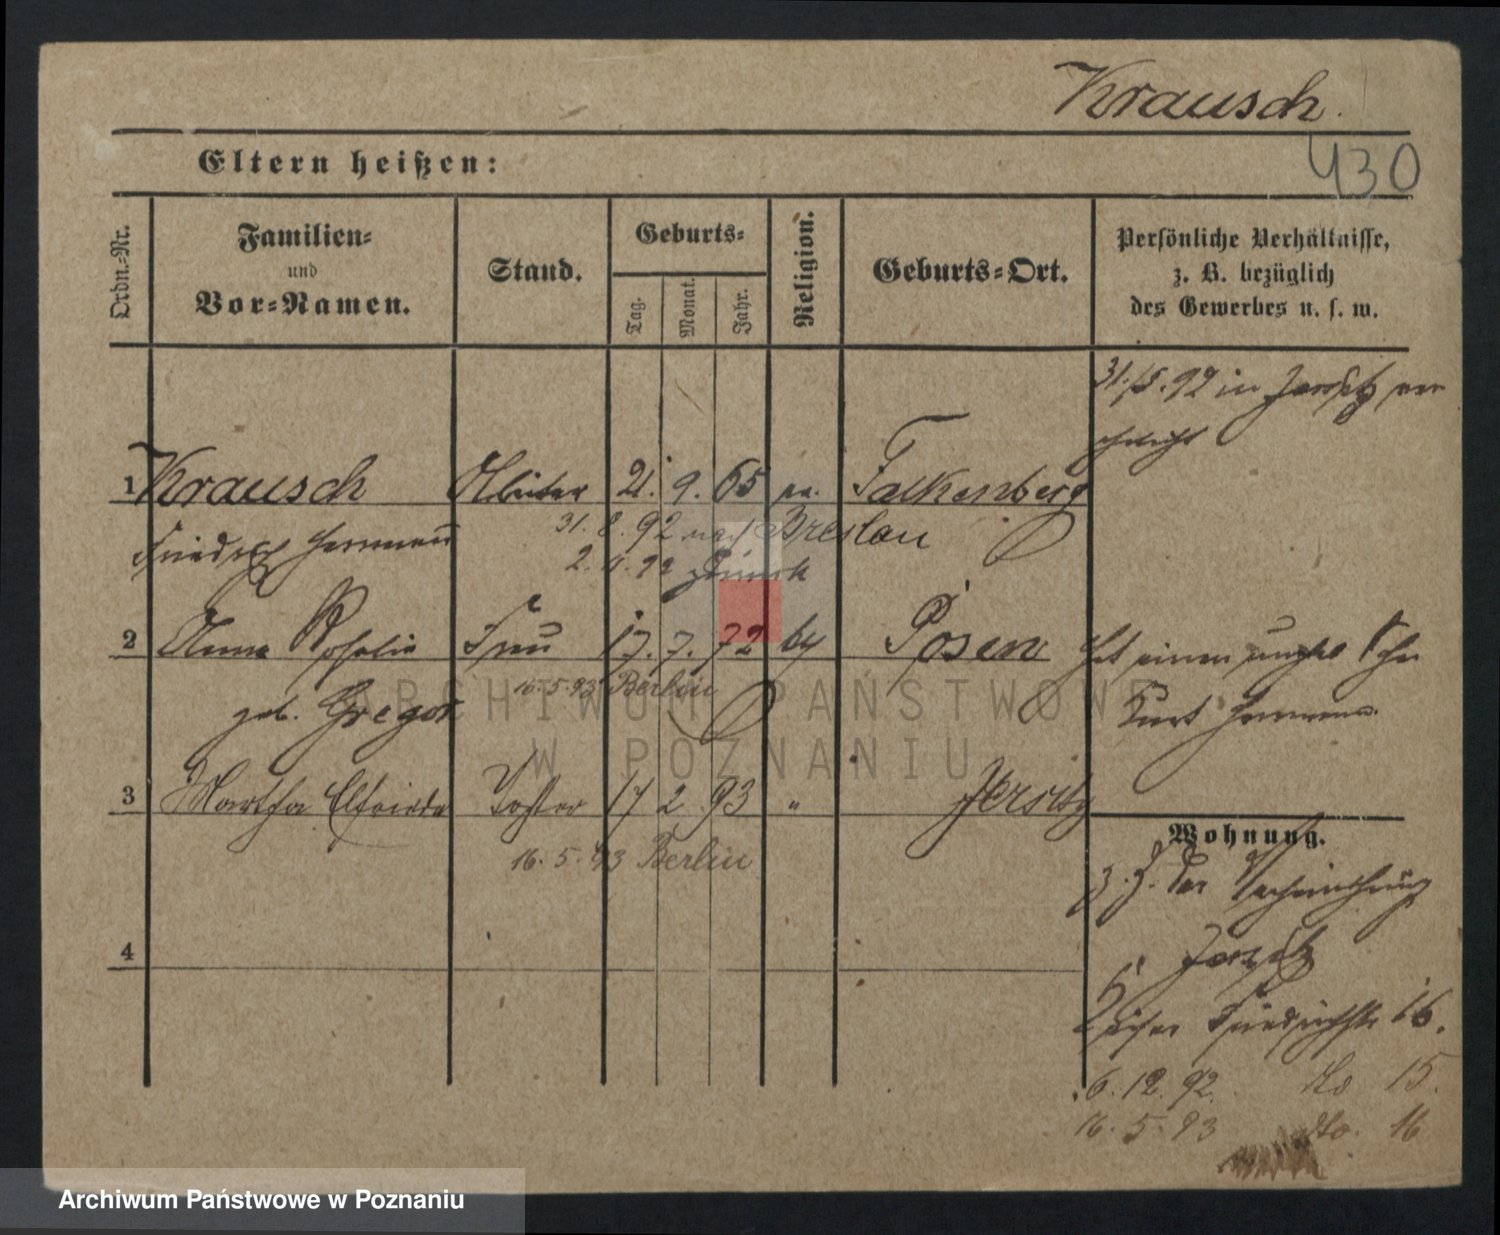 Krausch.
430
Eltern heißen:
Ordn.-Nr.
Familien-
und
Vor-Namen.
Stand.
Geburts-
Tag.
Monat.
Jahr.
Religion.
Geburts-Ort.
Persönliche Verhältnisse,
z. B. bezüglich
des Gewerbes u. s. w.
31. 5. 92 in Jersitz ver
ehelicht
1 Krausch 21. 9. 65 ev. Falkenberg
Friedrich Hermann
31. 8. 92 nach Breslau
2. 11. 92 zurück
2 Anna Rosalie Frau 17. 7. 72 Posen
Hat einen Sohn
16. 5. 93 Berlin
geb. Gregor
Kurt Hermann
3 Martha Elfriede Tochter 17 2 93 " Jersitz
16. 5. 93 Berlin
Wohnung.
z. Z. der
Jersitz
Kaiser Friedrichstr 16.
4
6. 12. 92. do 15.
16. 5. 93 dto. 16
ARCHIWUM PAŃSTWOWE
W POZNANIU
Archiwum Państwowe w Poznaniu